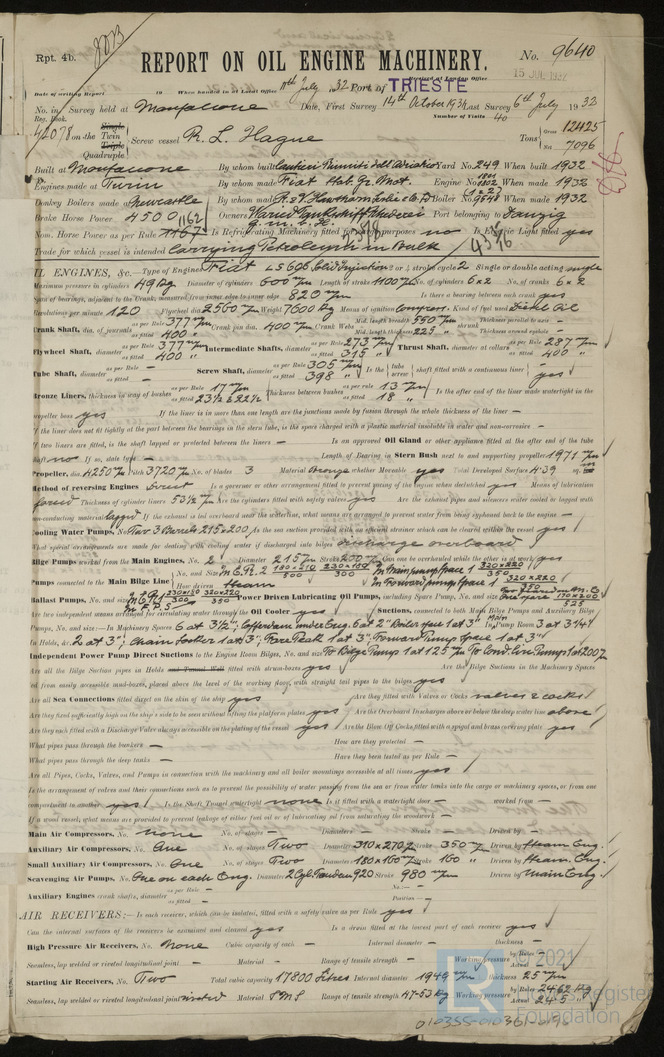 Rpt. 4b.
REPORT ON OIL ENGINE MACHINERY.
No. 9640
Received at London Office
15 JUL 1932
Date of writing Report 19 When handed in at Local Office 11th July 1932 Port of TRIESTE
No. in Survey held at Monfalcone Date, First Survey 14th October 1931 Last Survey 6th July 1932
Reg. Book. Number of Visits 40
42078 on the Single Twin Triple Quadruple Screw vessel R. L. Hague Tons Gross 12425 Net 7096
Built at Monfalcone By whom built Cantieri Riuniti dell'Adriatico Yard No. 249 When built 1932
Engines made at Turin By whom made Fiat Stab. Gr. Mot. Engine No. When made 1932
Donkey Boilers made at Newcastle By whom made R. & W. Hawthorn Leslie & Co. Ltd Boiler No. When made 1932
Brake Horse Power 4500 Owners Port belonging to Danzig
Nom. Horse Power as per Rule 1167 1162 Is Refrigerating Machinery fitted for cargo purposes no Is Electric Light fitted yes
Trade for which vessel is intended Carrying Petroleum in Bulk
OIL ENGINES, &c.—Type of Engines Fiat LS 606 Solid Injection 2 or 4 stroke cycle 2 Single or double acting single
Maximum pressure in cylinders 49 Kg Diameter of cylinders 600 m/m Length of stroke 1100 m/m No. of cylinders 6 x 2 No. of cranks 6 x 2
Span of bearings, adjacent to the Crank, measured from inner edge to inner edge 820 m/m Is there a bearing between each crank yes
Revolutions per minute 120 Flywheel dia. 2560 m/m Weight 7600 Kg Means of ignition Compress. Kind of fuel used Diesel Oil
Crank Shaft, dia. of journals as per Rule 377 m/m as fitted 400 Crank pin dia. 400 m/m Crank Webs Mid. length breadth 550 m/m Mid. length thickness 225 Thickness parallel to axis – Thickness around eyehole –
Flywheel Shaft, diameter as per Rule 377 m/m as fitted 400 Intermediate Shafts, diameter as per Rule 273 m/m as fitted 315 Thrust Shaft, diameter at collars as per Rule 287 m/m as fitted 400
Tube Shaft, diameter as per Rule – as fitted – Screw Shaft, diameter as per Rule 305 m/m as fitted 398 Is the tube screw shaft fitted with a continuous liner yes
Bronze Liners, thickness in way of bushes as per Rule 17 m/m as fitted 23½ & 22½ Thickness between bushes as per rule 13 m/m as fitted 18 Is the after end of the liner made watertight in the
propeller boss yes If the liner is in more than one length are the junctions made by fusion through the whole thickness of the liner –
If the liner does not fit tightly at the part between the bearings in the stern tube, is the space charged with a plastic material insoluble in water and non-corrosive –
If two liners are fitted, is the shaft lapped or protected between the liners – Is an approved Oil Gland or other appliance fitted at the after end of the tube
shaft no If so, state type – Length of Bearing in Stern Bush next to and supporting propeller 1971 m/m
Propeller, dia. 4250 m/m Pitch 3720 m/m No. of blades 3 Material Bronze whether Moveable yes Total Developed Surface 4.39
Method of reversing Engines Direct Is a governor or other arrangement fitted to prevent racing of the engine when declutched yes Means of lubrication
forced Thickness of cylinder liners 53½ m/m Are the cylinders fitted with safety valves yes Are the exhaust pipes and silencers water cooled or lagged with
non-conducting material lagged If the exhaust is overboard near the waterline, what means are arranged to prevent water from being syphoned back to the engine –
Cooling Water Pumps, No. Two 3 Barrels 215 x 200 Is the sea suction provided with an efficient strainer which can be cleared within the vessel yes
What special arrangements are made for dealing with cooling water if discharged into bilges discharge overboard
Bilge Pumps worked from the Main Engines, No. 2 Diameter 215 m/m Stroke 200 m/m Can one be overhauled while the other is at work yes
Pumps connected to the Main Bilge Line No. and Size In Main pump space 1 320 x 220 / 350 In Forward pump space 1 320 x 220 / 350 How driven steam
Ballast Pumps, No. and size Power Driven Lubricating Oil Pumps, including Spare Pump, No. and size
Are two independent means arranged for circulating water through the Oil Cooler yes Suctions, connected to both Main Bilge Pumps and Auxiliary Bilge
Pumps, No. and size:—In Machinery Spaces 6 at 3½", Cofferdam under Eng. 6 at 2" Boiler space 1 at 3" In Main Pump Room 3 at 3¼"
In Holds, &c. 2 at 3"; Chain Locker 1 at 3"; Fore Peak 1 at 3"; Forward Pump Space 1 at 3"
Independent Power Pump Direct Suctions to the Engine Room Bilges, No. and size To Bilge Pumps 1 at 125 m/m To Cond. Circ. Pump 1 at 200 m/m
Are all the Bilge Suction pipes in Holds and Tunnel Well fitted with strum-boxes yes Are the Bilge Suctions in the Machinery Spaces
led from easily accessible mud-boxes, placed above the level of the working floor, with straight tail pipes to the bilges yes
Are all Sea Connections fitted direct on the skin of the ship yes Are they fitted with Valves or Cocks valves & cocks
Are they fixed sufficiently high on the ship's side to be seen without lifting the platform plates yes Are the Overboard Discharges above or below the deep water line above
Are they each fitted with a Discharge Valve always accessible on the plating of the vessel yes Are the Blow Off Cocks fitted with a spigot and brass covering plate yes
What pipes pass through the bunkers – How are they protected –
What pipes pass through the deep tanks – Have they been tested as per Rule –
Are all Pipes, Cocks, Valves, and Pumps in connection with the machinery and all boiler mountings accessible at all times yes
Is the arrangement of valves and their connections such as to prevent the possibility of water passing from the sea or from water tanks into the cargo or machinery spaces, or from one
compartment to another yes Is the Shaft Tunnel watertight none Is it fitted with a watertight door – worked from –
If a wood vessel, what means are provided to prevent leakage of either fuel oil or of lubricating oil from saturating the woodwork –
Main Air Compressors, No. none No. of stages – Diameters – Stroke – Driven by –
Auxiliary Air Compressors, No. One No. of stages Two Diameters 310 x 270 Stroke 350 m/m Driven by Steam Eng.
Small Auxiliary Air Compressors, No. One No. of stages Two Diameters 180 x 160 m/m Stroke 160 " Driven by Steam Eng.
Scavenging Air Pumps, No. One on each Eng. Diameter 2 Cyl. Tandem 920 Stroke 980 m/m Driven by Main Eng.
Auxiliary Engines crank shafts, diameter as per Rule – as fitted – No. – Position –
AIR RECEIVERS:—Is each receiver, which can be isolated, fitted with a safety valve as per Rule yes
Can the internal surfaces of the receivers be examined and cleaned yes Is a drain fitted at the lowest part of each receiver yes
High Pressure Air Receivers, No. None Cubic capacity of each – Internal diameter – thickness –
Seamless, lap welded or riveted longitudinal joint – Material – Range of tensile strength – Working pressure by Rules – Actual –
Starting Air Receivers, No. Two Total cubic capacity 17800 Litres Internal diameter 1949 m/m thickness 25 m/m
Seamless, lap welded or riveted longitudinal joint riveted Material S M S Range of tensile strength 47-53 Kg Working pressure by Rules 24.62 Kg Actual 24.5
© 2021
Lloyd's Register
Foundation
010355-010361-0196